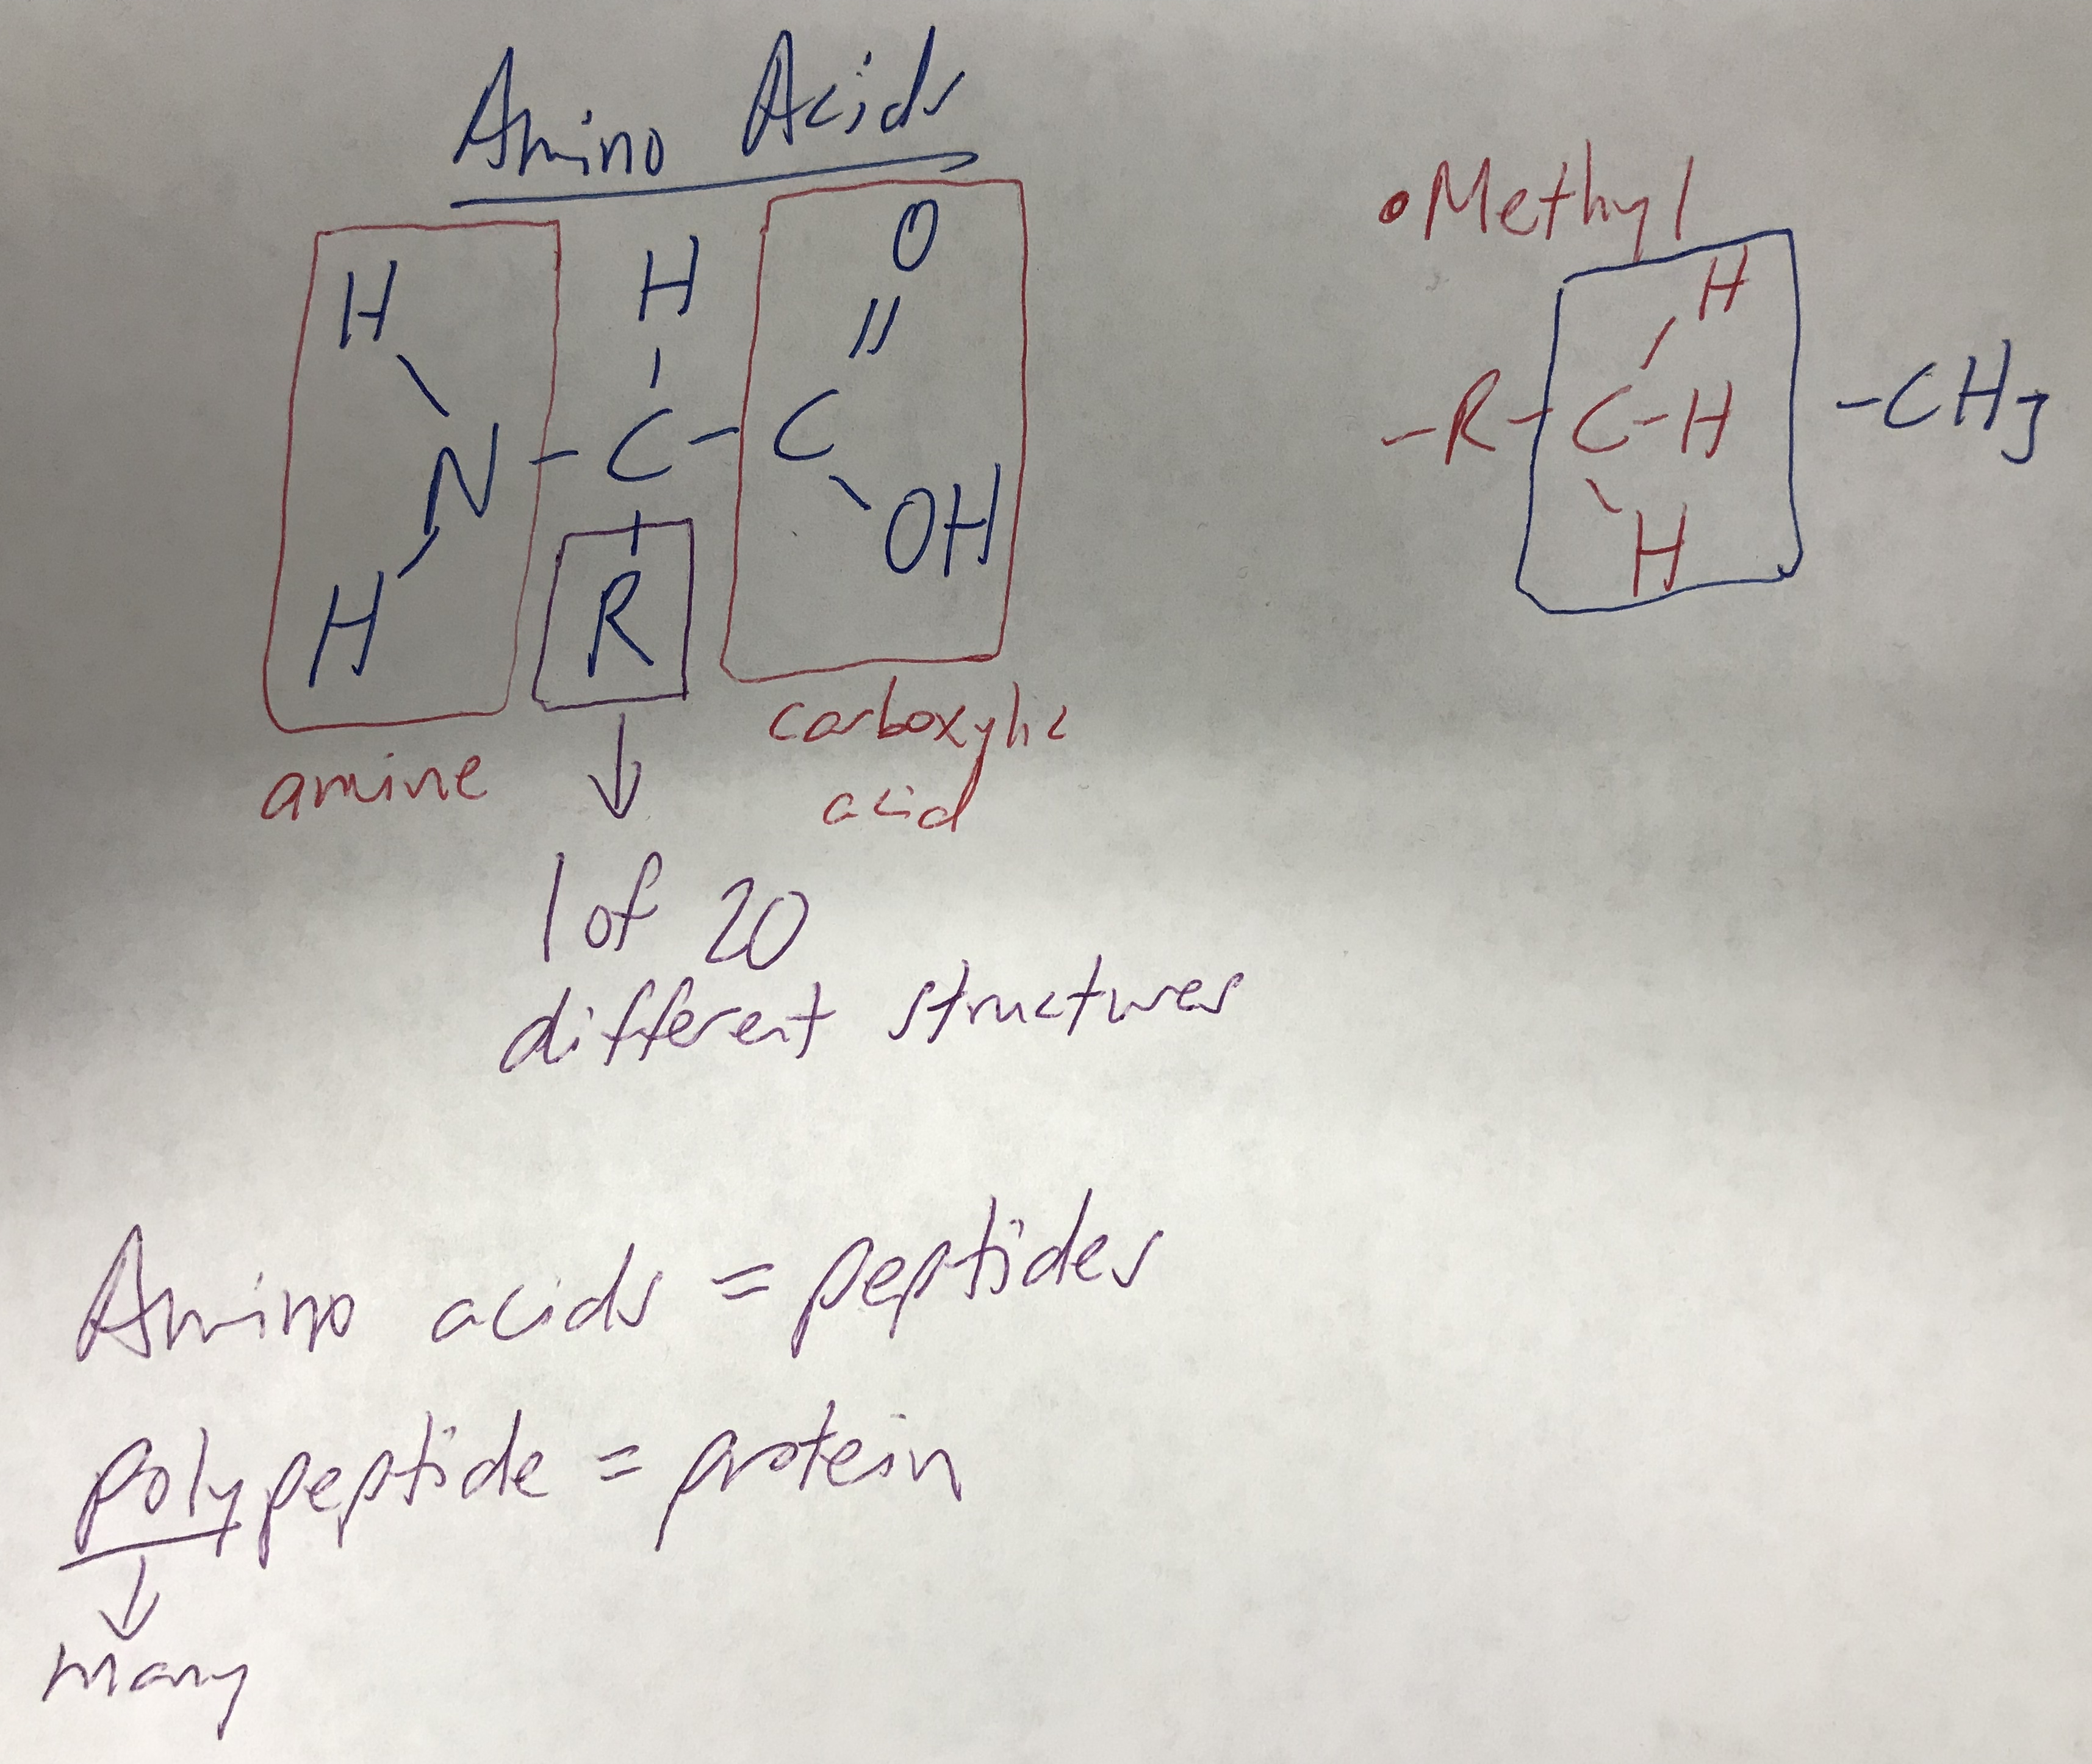 Amino Acids
H H O
||
N - C - C
H R OH
amine
carboxylic
acid
1 of 20
different structures
• Methyl
H
-R-C-H -CH3
H
Amino acids = peptides
polypeptide = protein
many